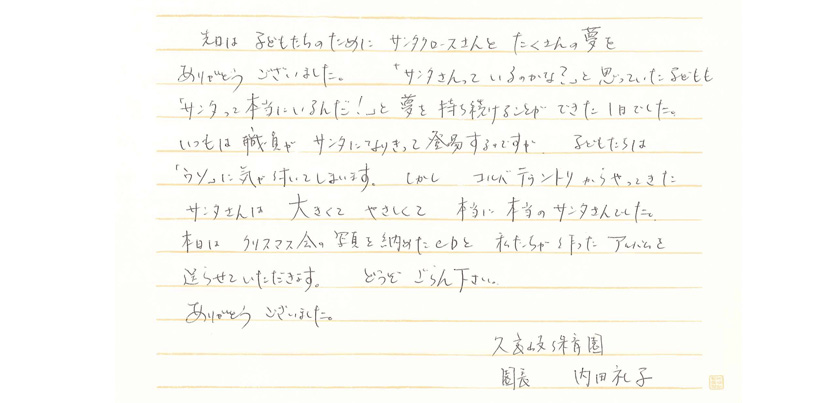 先日は 子どもたちのために サンタクロースさんと たくさんの夢を
ありがとう ございました。 「サンタさんって いるのかな?」と思っていた子どもも
「サンタって本当にいるんだ!」と 夢を 持ち続けることが できた1日でした。
いつもは 職員が サンタになりきって 登場するのですが、 子どもたちは
「ウソ」に気が付いてしまいます。 しかし コルバ テラントリからやってきた
サンタさんは 大きくて やさしくて 本当に 本当のサンタさんでした。
本日は クリスマス会の 写真を納めた と 私たちが 作った アルバムを
送らせていただきます。 どうぞ ごらん下さい。
ありがとう ございました。
保育園
園長 内田礼子